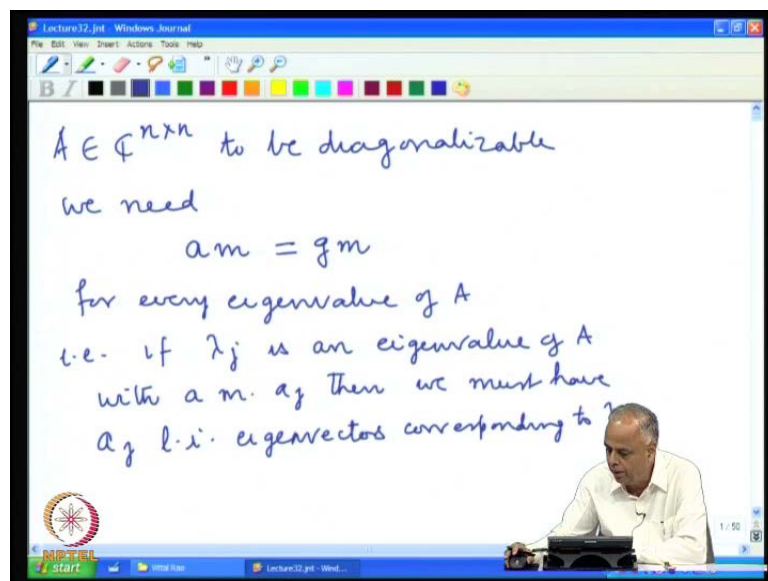 Lecture32.jnt - Windows Journal
File Edit View Insert Actions Tools Help
B I
A ∈ ℂ^{n×n} to be diagonalizable
we need
am = gm
for every eigenvalue of A
i.e. if λj is an eigenvalue of A
with a m. aj then we must have
aj l.i. eigenvectors corresponding to
1 / 50
NPTEL
start Vittal Rao Lecture32.jnt - Wind...